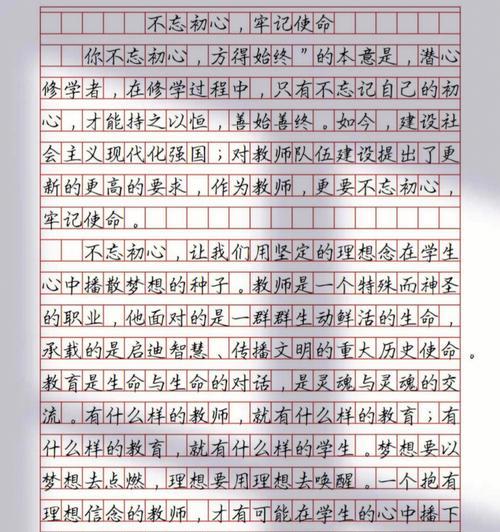 不忘初心，牢记使命
你不忘初心，方得始终”的本意是，潜心
修学者，在修学过程中，只有不忘记自己的初
心，才能持之以恒，善始善终。如今，建设社
会主义现代化强国；对教师队伍建设提出了更
新的更高的要求，作为教师，更要不忘初心，
牢记使命。
不忘初心，让我们用坚定的理想念在学生
心中播散梦想的种子。教师是一个特殊而神圣
的职业，他面对的是一群群生动鲜活的生命，
承载的是启迪智慧、传播文明的重大历史使命。
教育是生命与生命的对话，是灵魂与灵魂的交
流。有什么样的教师，就有什么样的教育；有
什么样的教育，就有什么样的学生。梦想要以
梦想去点燃，理想要用理想去唤醒。一个抱有
理想信念的教师，才有可能在学生的心中播下